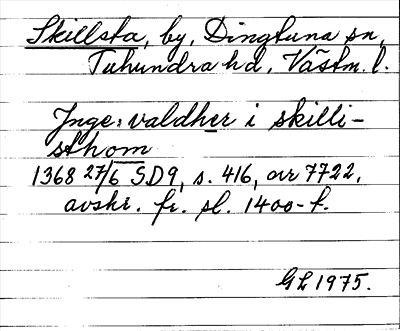 Skillsta, by, Dingtuna sn,
Tuhundra hd, Västm. l.
Jnge:valdher i skilli-
sthom
1368 27/6 SD9, s. 416, nr 7722,
avskr. fr. sl. 1400-t.
GL 1975.